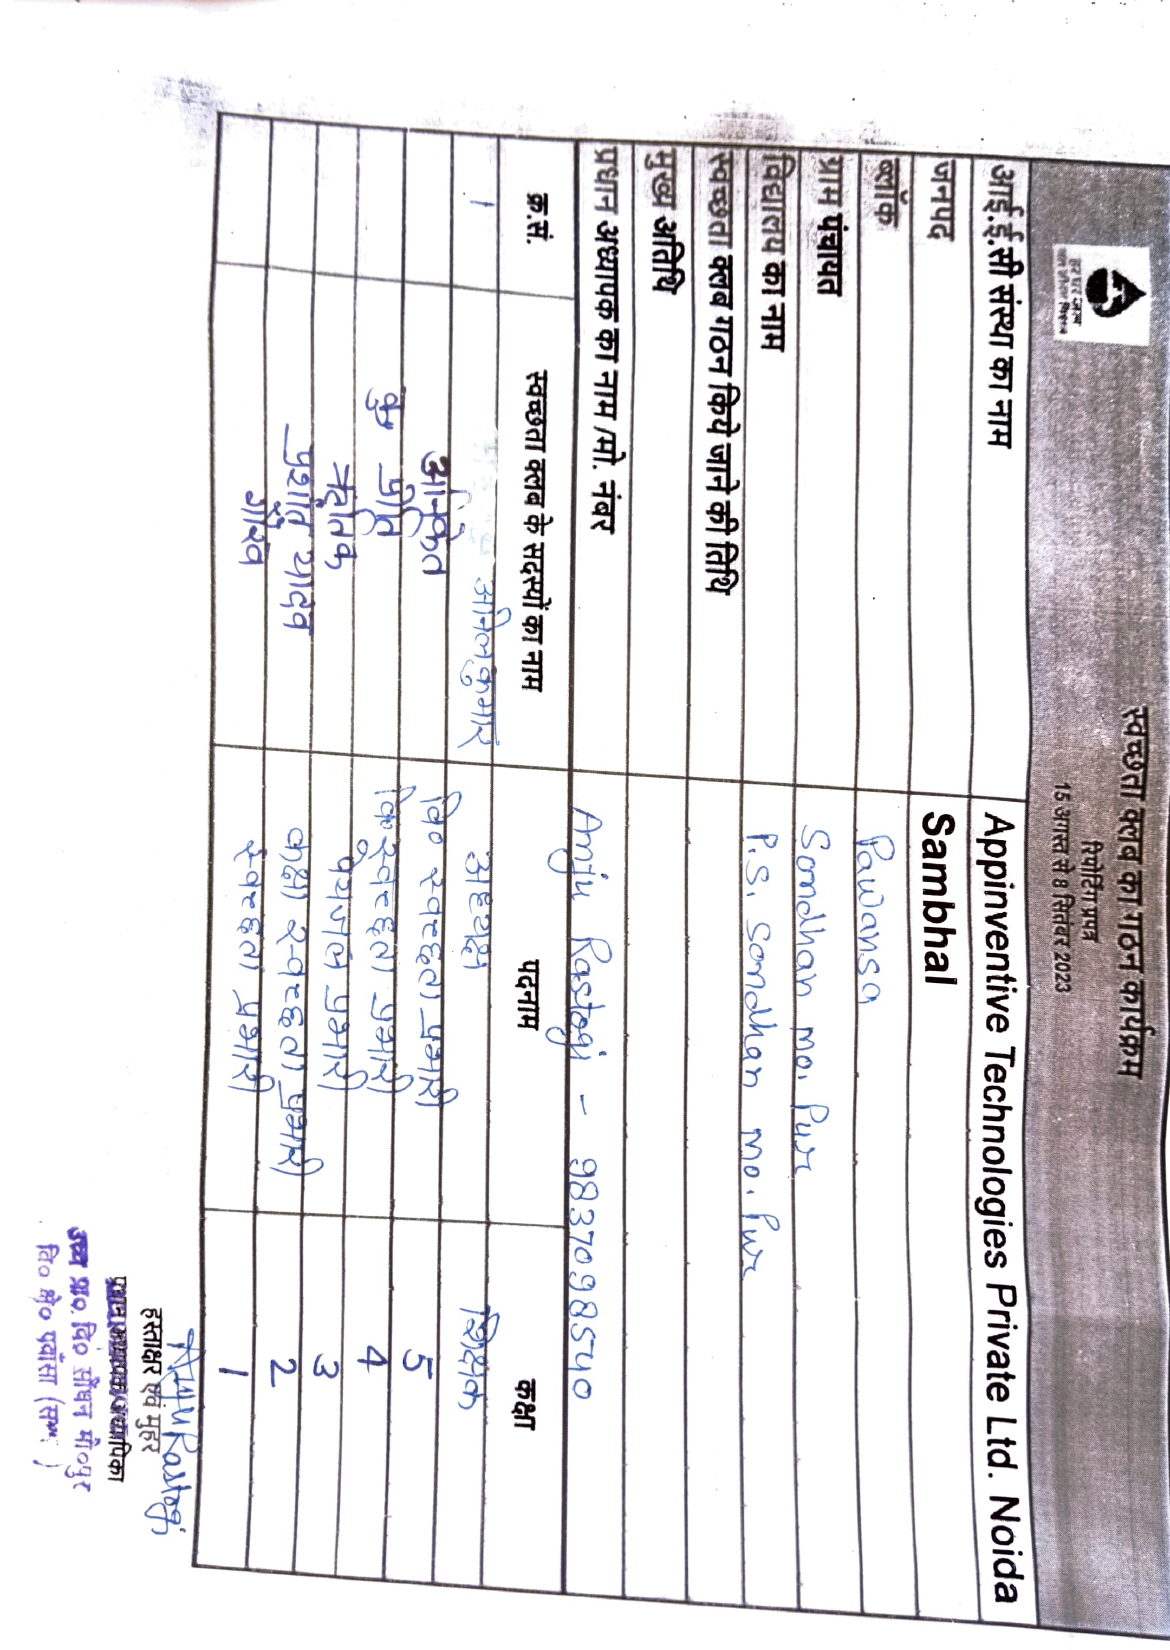 स्वच्छता क्लब का गठन कार्यक्रम
रिपोर्टिंग प्रपत्र
15 अगस्त से 8 सितंबर 2023
हर घर जल
जल जीवन मिशन
आई.ई.सी संस्था का नाम Appinventive Technologies Private Ltd. Noida
जनपद Sambhal
ब्लॉक Pawansa
ग्राम पंचायत Sondhan mo. Pur
विद्यालय का नाम P.S. Sondhan mo. Pur
स्वच्छता क्लब गठन किये जाने की तिथि
मुख्य अतिथि
प्रधान अध्यापक का नाम /मो. नंबर Anju Rastogi - 9837098540
क्र.सं. स्वच्छता क्लब के सदस्यों का नाम पदनाम कक्षा
1 अनिल कुमार अध्यक्ष शिक्षक
अनिकेत वि० स्वच्छता प्रभारी 5
कु प्रीति वि० स्वच्छता प्रभारी 4
पेयजल प्रभारी 3
प्रशांत यादव कक्षा स्वच्छता प्रभारी 2
गौरव स्वच्छता प्रभारी 1
Anju Rastogi
हस्ताक्षर एवं मुहर
प्र० वि० सौंधन मो०पुर
वि० क्षे० पवांसा